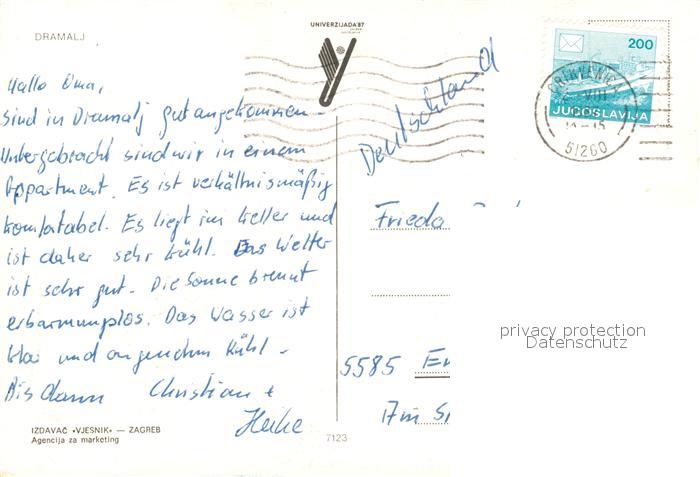 DRAMALJ
UNIVERZIJADA'87
Hallo Oma,
sind in Dramalj gut angekommen.
Untergebracht sind wir in einem
Appartment. Es ist verhältnismäßig
komfortabel. Es liegt im Keller und
ist daher sehr kühl. Das Wetter
ist sehr gut. Die Sonne brennt
erbarmungslos. Das Wasser ist
klar und angenehm kühl.
Bis dann Christian +
Heike
IZDAVAČ «VJESNIK» — ZAGREB
Agencija za marketing
7123
Deutschland
200
JUGOSLAVIJA
51260
Frieda
5585 En
Im
privacy protection
Datenschutz